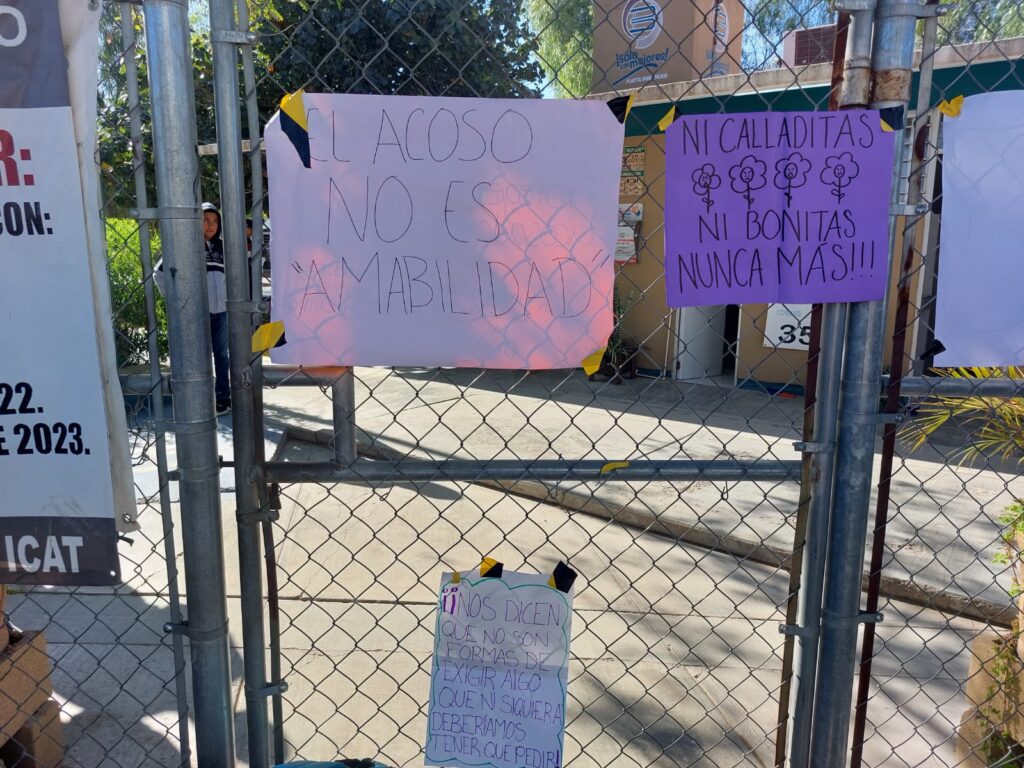 O
R:
CON:
22.
E 2023.
ICAT
EL ACOSO
NO ES
"AMABILIDAD"
NI CALLADITAS
NI BONITAS
NUNCA MÁS!!!
¡¡NOS DICEN
QUE NO SON
FORMAS DE
EXIGIR ALGO
QUE NI SIQUIERA
DEBERÍAMOS
TENER QUE PEDIR!
¡sólo
los mejores!
35